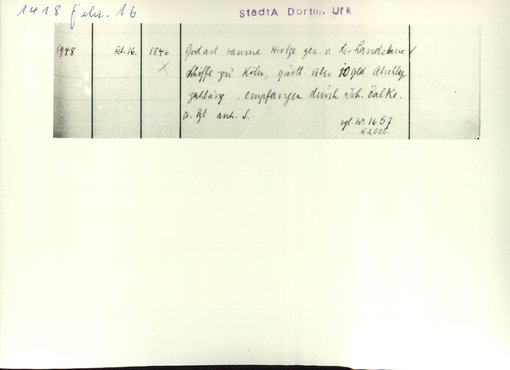 1418 Febr. 16
StadtA Dortm. Urk
1418 Feb. 16. 1840 Godart vanme Hirtze gen. v. der Landskrone
X Schöffe zu Köln, quitt. über 10 gld. Abschlag
zahlung, empfangen durch Joh. Balke.
a. Pgt. anh. S.
vgl. Nr. 1657.
u. 2005.